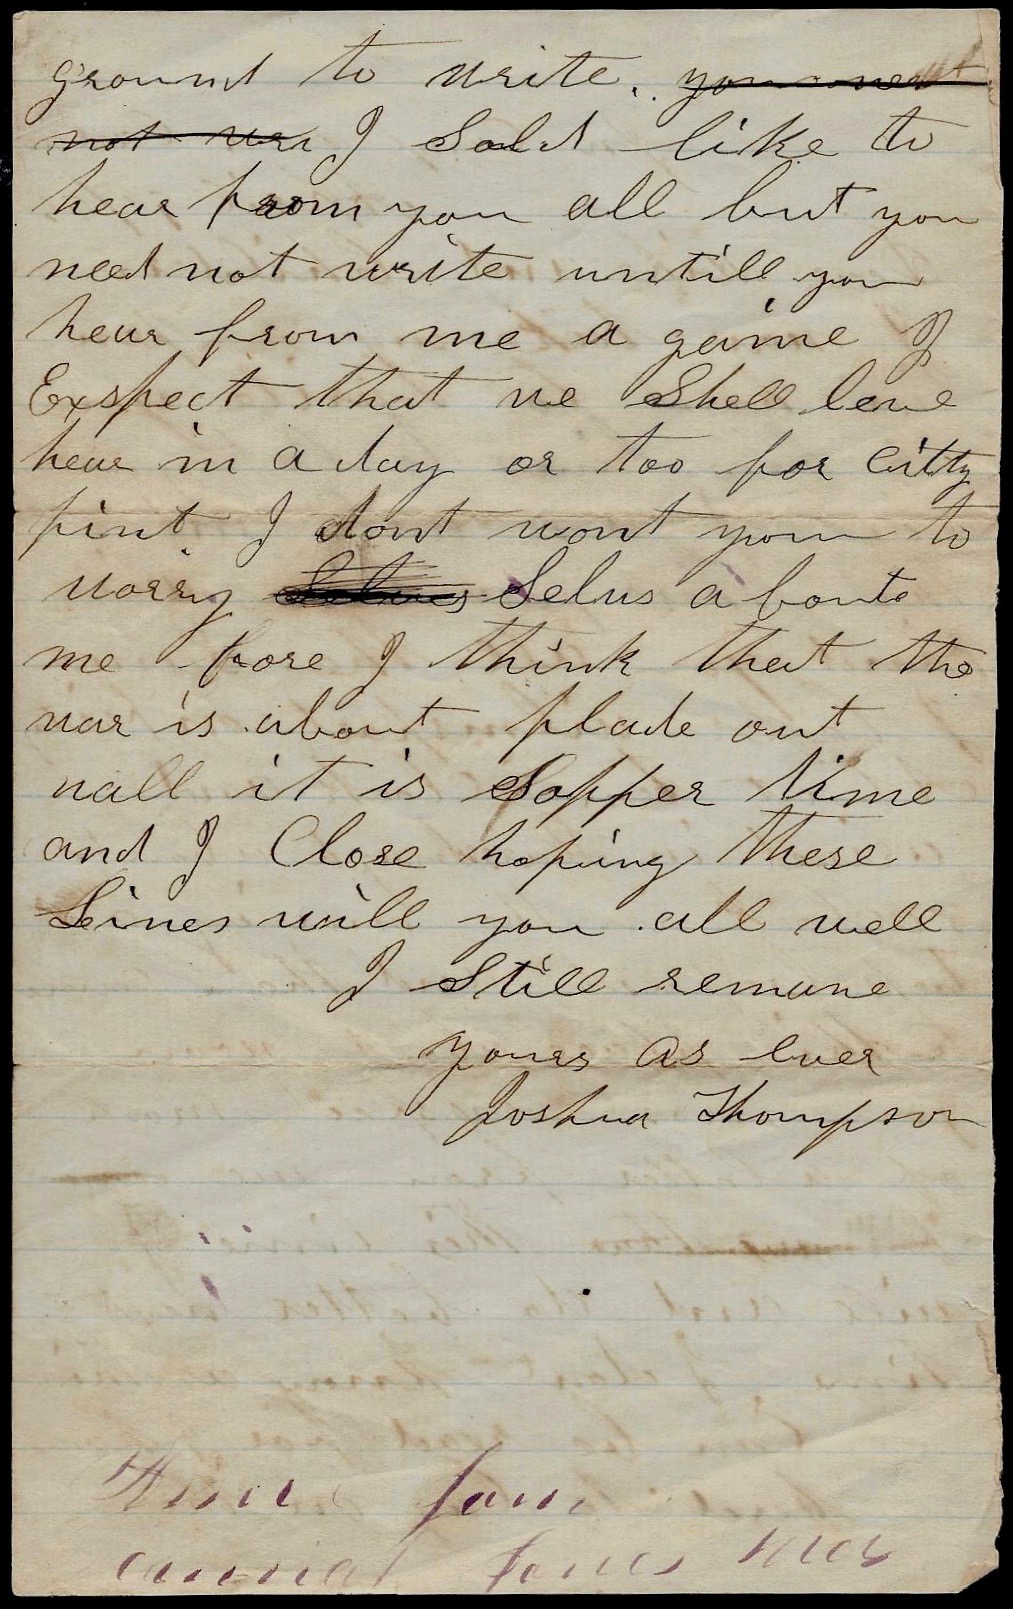 ground to write. you need
not wri I Sold like to
hear from you all but you
need not write untill you
hear from me a gaine I
Exspect that we Shell leve
hear in a day or too for Citty
pint. I dont wont you to
worry Selus a boute
me fore I think that the
war is about plade out
wall it is Sopper time
and I Close hoping these
Leines will you all well
I Still remane
yours as ever
Joshua Thompson
Jane